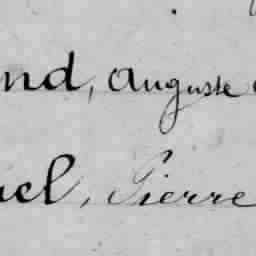 nd, Auguste
el, Pierre